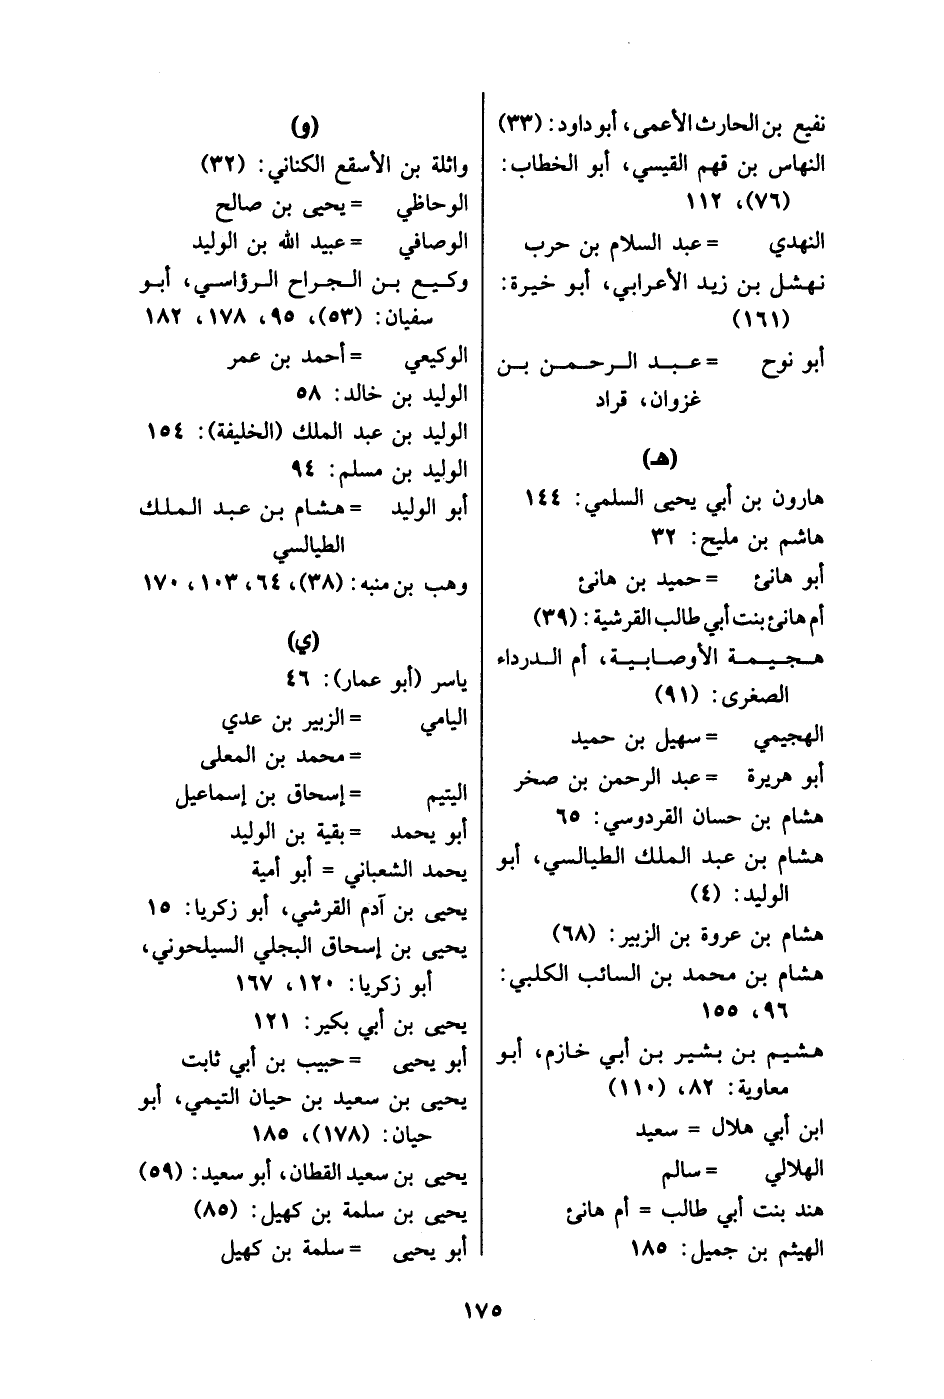 نفيع بن الحارث الأعمى، أبو داود: (٣٣)
النهاس بن قهم القيسي، أبو الخطاب:
(٧٦)، ١١٢
النهدي = عبد السلام بن حرب
نهشل بن زيد الأعرابي، أبو خيرة:
(١٦١)
أبو نوح = عبد الرحمن بن
غزوان، قراد
(هـ)
هارون بن أبي يحيى السلمي: ١٤٤
هاشم بن مليح: ٣٢
أبو هانئ = حميد بن هانئ
أم هانئ بنت أبي طالب القرشية: (٣٩)
هجيمة الأوصابية، أم الدرداء
الصغرى: (٩١)
الهجيمي = سهيل بن حميد
أبو هريرة = عبد الرحمن بن صخر
هشام بن حسان القردوسي: ٦٥
هشام بن عبد الملك الطيالسي، أبو
الوليد: (٤)
هشام بن عروة بن الزبير: (٦٨)
هشام بن محمد بن السائب الكلبي:
٩٦، ١٥٥
هشيم بن بشير بن أبي خازم، أبو
معاوية: ٨٢، (١١٠)
ابن أبي هلال = سعيد
الهلالي = سالم
هند بنت أبي طالب = أم هانئ
الهيثم بن جميل: ١٨٥
(و)
واثلة بن الأسقع الكناني: (٣٢)
الوحاظي = يحيى بن صالح
الوصافي = عبيد الله بن الوليد
وكيع بن الجراح الرؤاسي، أبو
سفيان: (٥٣)، ٩٥، ١٧٨، ١٨٢
الوكيعي = أحمد بن عمر
الوليد بن خالد: ٥٨
الوليد بن عبد الملك (الخليفة): ١٥٤
الوليد بن مسلم: ٩٤
أبو الوليد = هشام بن عبد الملك
الطيالسي
وهب بن منبه: (٣٨)، ٦٤، ١٠٣، ١٧٠
(ي)
ياسر (أبو عمار): ٤٦
اليامي = الزبير بن عدي
= محمد بن المعلى
اليتيم = إسحاق بن إسماعيل
أبو يحمد = بقية بن الوليد
يحمد الشعباني = أبو أمية
يحيى بن آدم القرشي، أبو زكريا: ١٥
يحيى بن إسحاق البجلي السيلحوني،
أبو زكريا: ١٢٠، ١٦٧
يحيى بن أبي بكير: ١٢١
أبو يحيى = حبيب بن أبي ثابت
يحيى بن سعيد بن حيان التيمي، أبو
حيان: (١٧٨)، ١٨٥
يحيى بن سعيد القطان، أبو سعيد: (٥٩)
يحيى بن سلمة بن كهيل: (٨٥)
أبو يحيى = سلمة بن كهيل
١٧٥